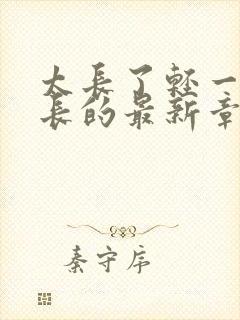 太長了輕一
長的最新章
秦守序